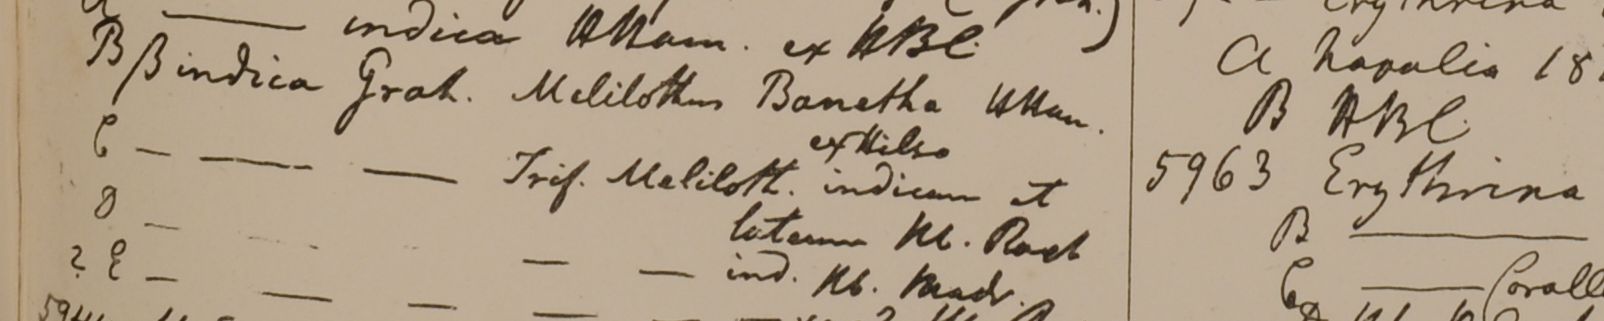 indica HHam. ex HBC.
B β indica Grah. Melilothus Banetha HHam.
ex Hilso
C — — — Trif. Meliloth. indicum et
D — luteum Hb. Roxb
? E — — — — — ind. Hb. Madr.
Erythrina
a napalia 18
B HBC.
5963 Erythrina
B ———
C ——— Corall